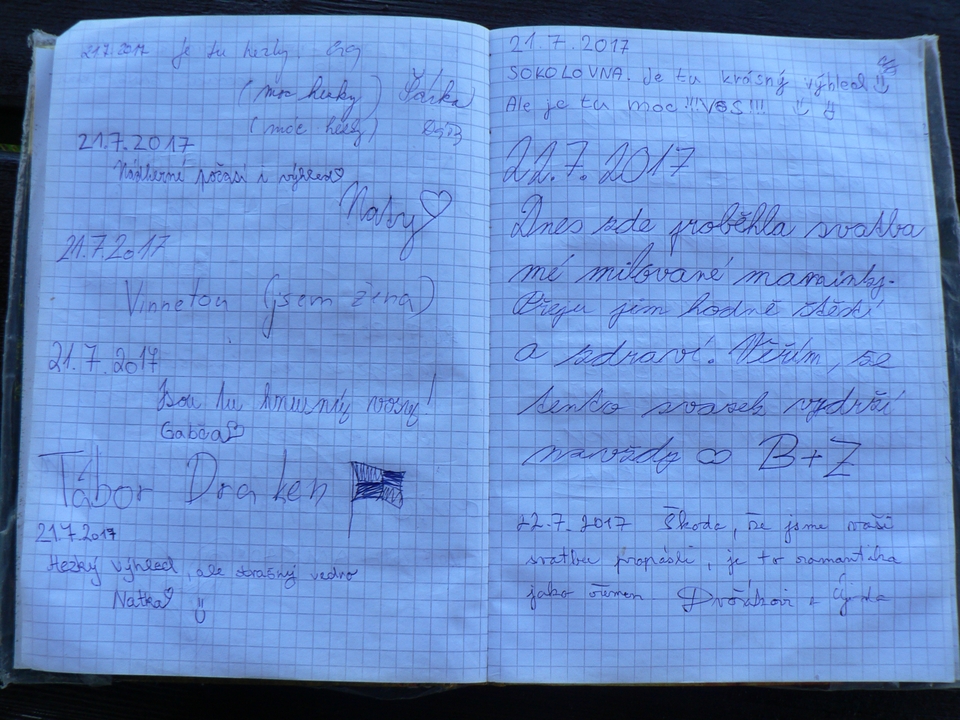 21.7.2017 Je tu hezky.
(moc hezky) Šárka
(moc hezky)
21.7.2017
Nádherné počasí i výhled
Naty
21.7.2017
Vinnetou (jsem žena)
21.7.2017
Jsou tu hnusný vosy!
Gabča
Tábor Draken
21.7.2017
Hezký výhled, ale strašný vedro
Natka
21.7.2017
SOKOLOVNA. Je tu krásný výhled
Ale je tu moc !!!VOS!!!
22.7.2017
Dnes zde proběhla svatba
mé milované maminky.
Přeju jim hodně štěstí
a zdraví. Věřím, že
tento svazek vydrží
navždy ∞ B+Z
22.7.2017 Škoda, že jsme vaší
svatbu propásli, je to romantika
jako řemen. Dvořákovi z